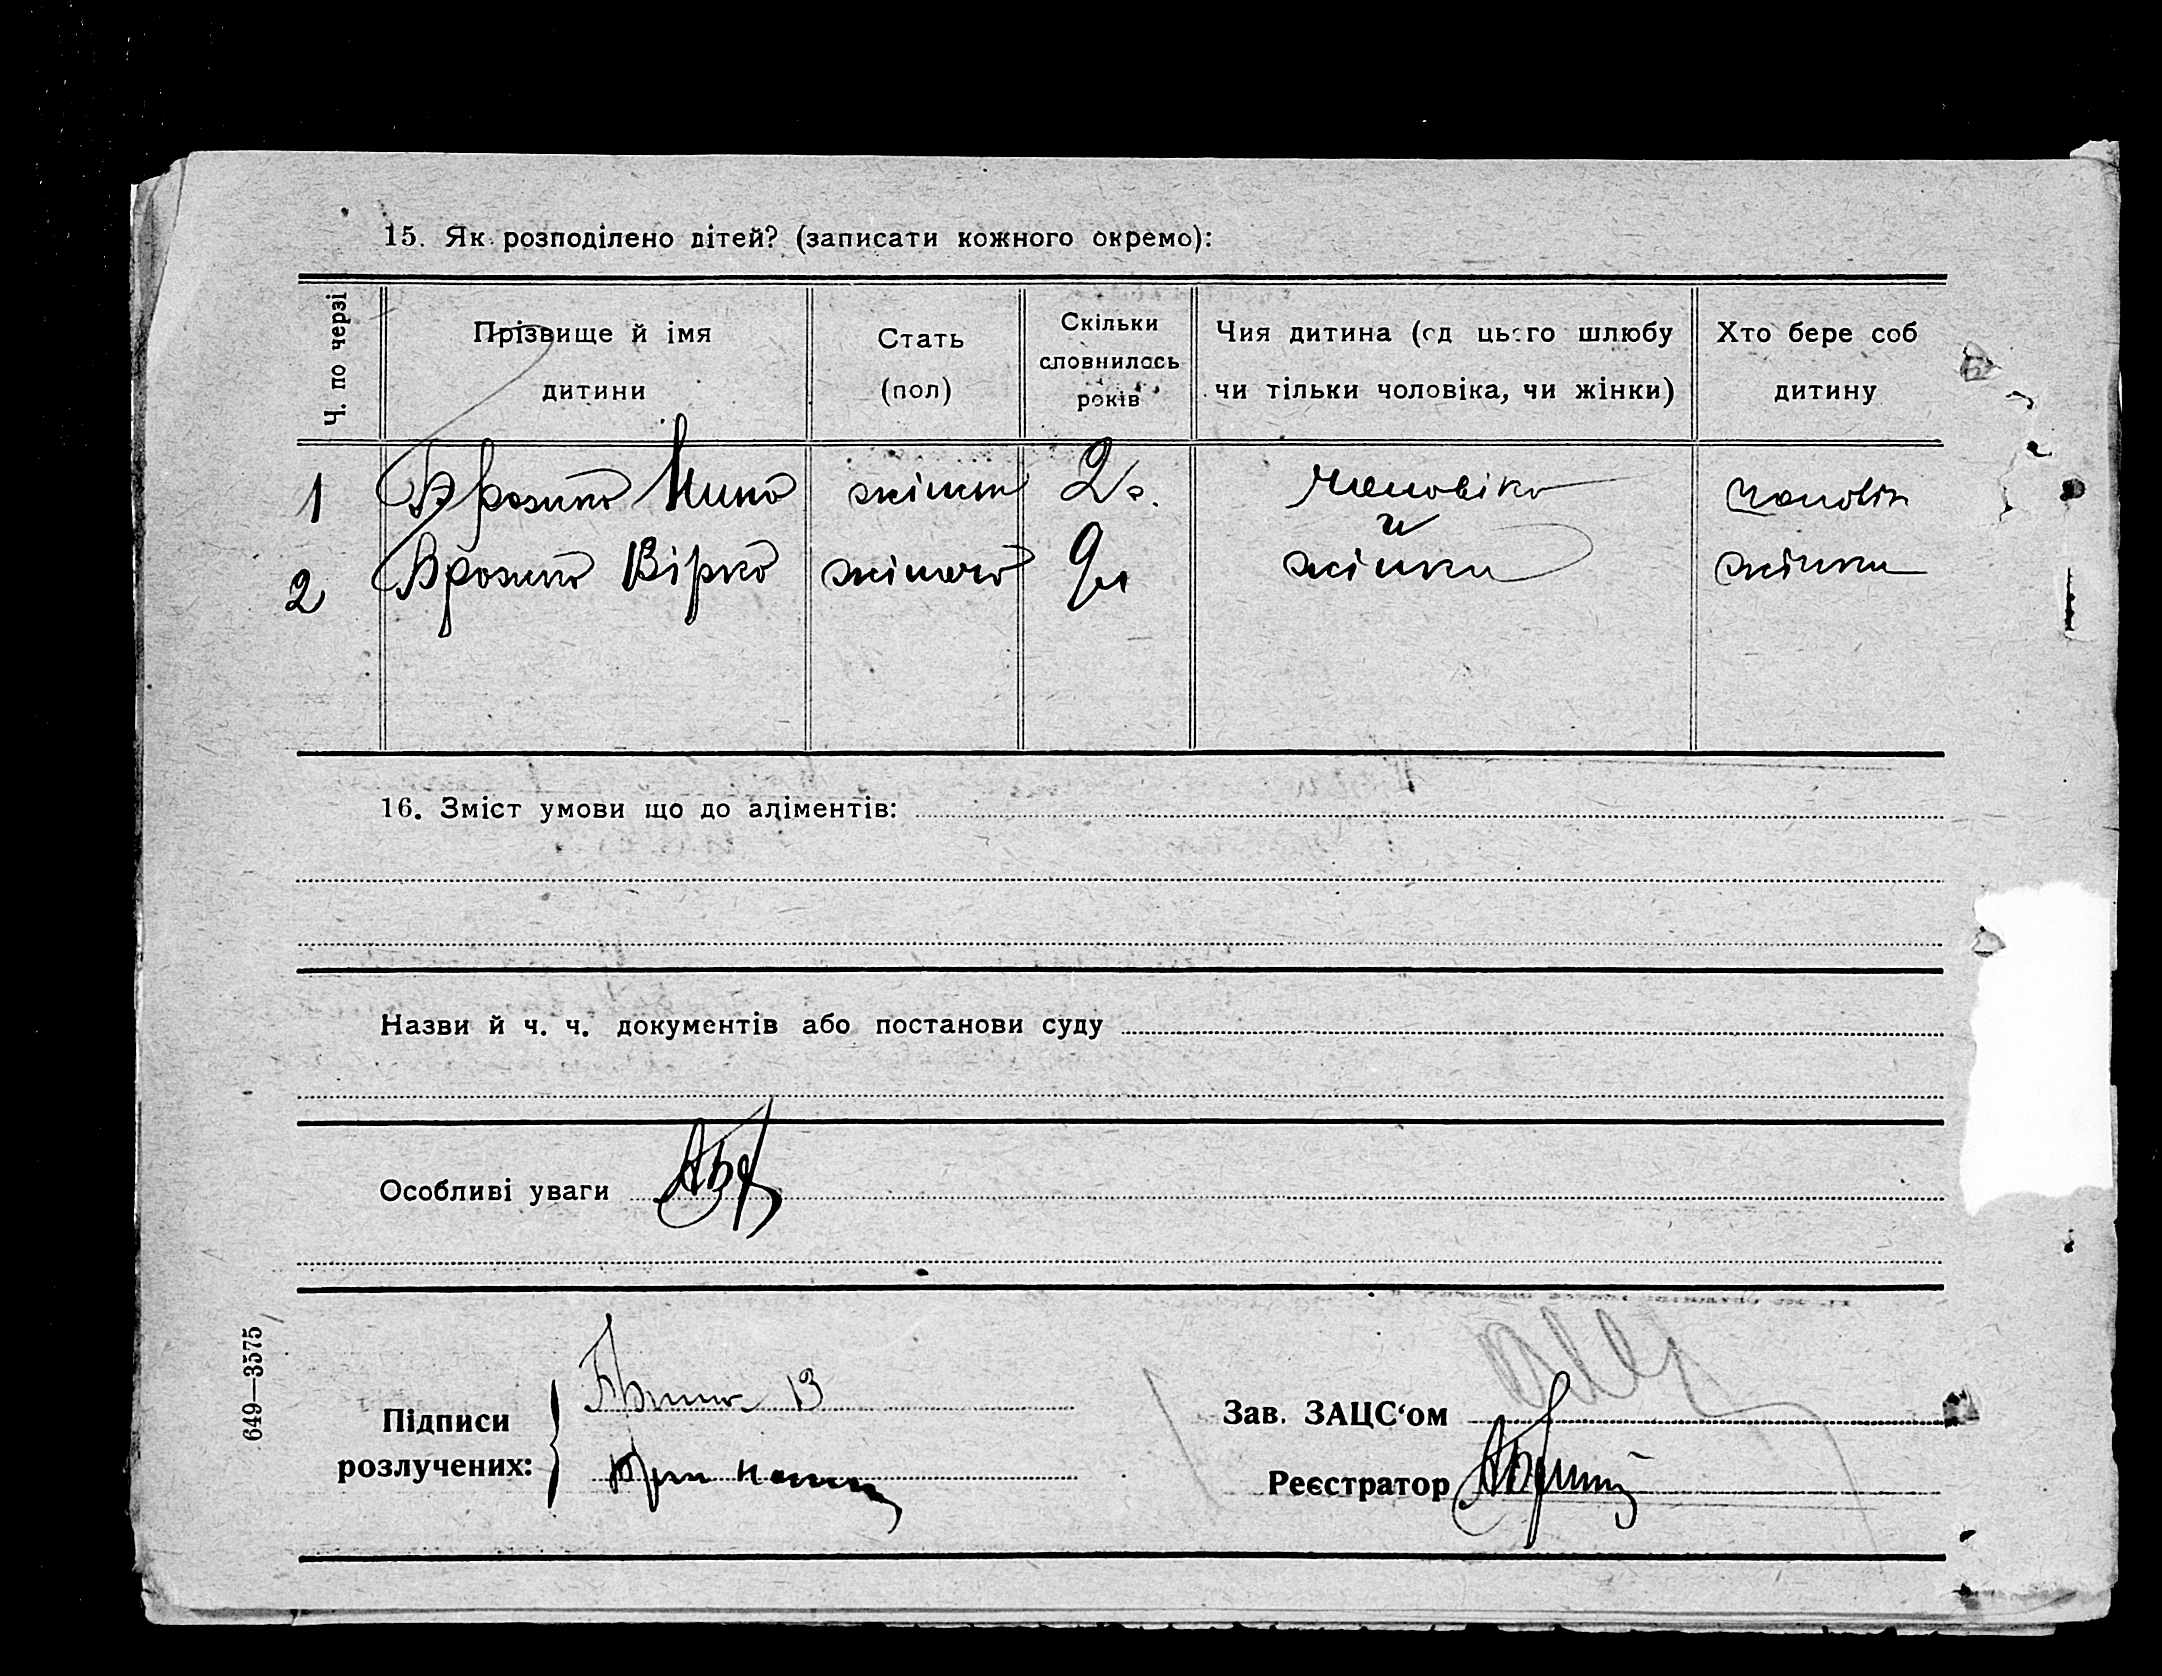 15. Як розподілено дітей? (записати кожного окремо):
Ч. по черзі
Прізвище й імя дитини
Стать (пол)
Скільки сповнилось років
Чия дитина (од цього шлюбу чи тільки чоловіка, чи жінки)
Хто бере соб дитину
1 Нина 2 чоловіка чоловік
й
2 Вірка жіноча 9 жінки жінка
16. Зміст умови що до аліментів:
Назви й ч. ч. документів або постанови суду
Особливі уваги
649—3575
Підписи розлучених:
Зав. ЗАЦС‘ом
Реєстратор